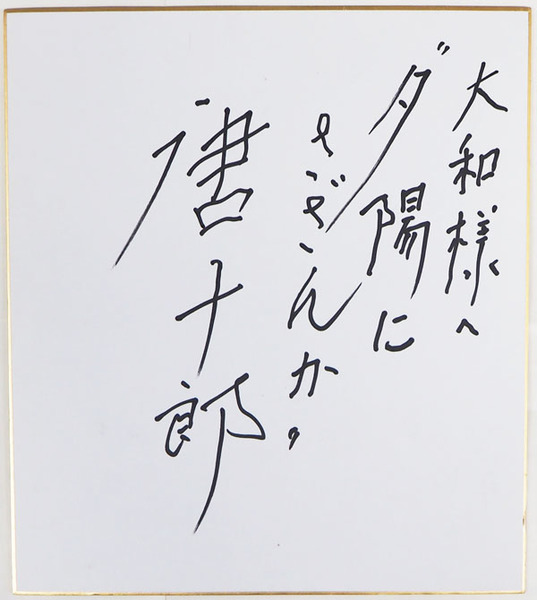 大和様へ
〝夕陽に
さざんか〟
唐十郎